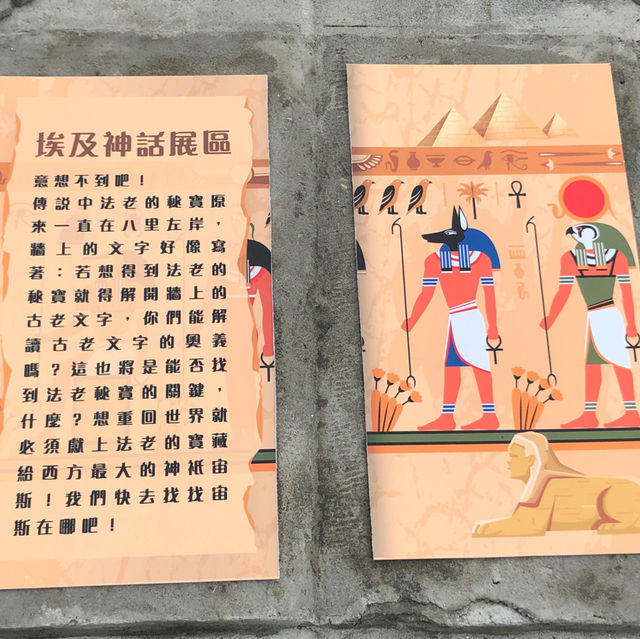 埃及神話展區
意想不到吧！
傳說中法老的秘寶原
來一直在八里左岸，
牆上的文字好像寫
著：若想得到法老的
秘寶就得解開牆上的
古老文字，你們能解
讀古老文字的奧義
嗎？這也將是能否找
到法老秘寶的關鍵，
什麼？想重回世界就
必須獻上法老的寶藏
給西方最大的神祇宙
斯！我們快去找找宙
斯在哪吧！